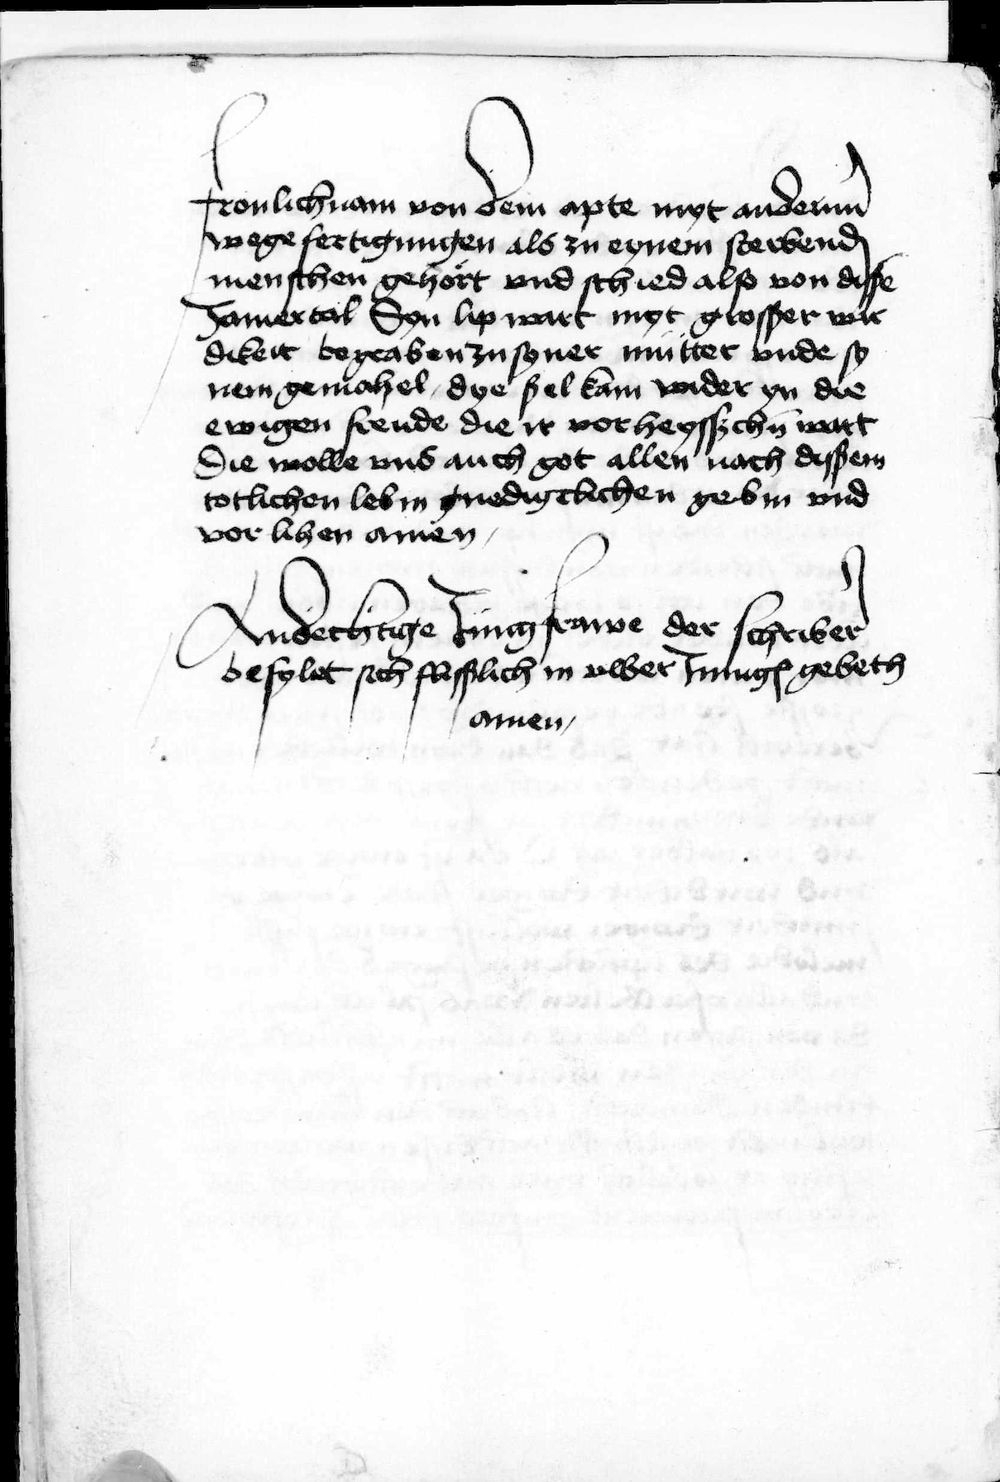 fronlichnam von dem apte myt anderun
wege fertigungen als zu eynem sterbend
menschen gehört vnd schied also von disse
Jamertal Syn lip wart myt grosser wir
dikeit begraben zu syner mutter vnde sy
nem gemahel / dye sel kam wider yn die
ewigen freude die ir vorheysschn wart
Die wolle vns auch got allen nach dissem
totlichen lebin gnediglichen gebin vnd
vorlihen amen /
Andechtige Jungfrawe der schriber
befylet sich flisslich in vwer gebeth
amen /